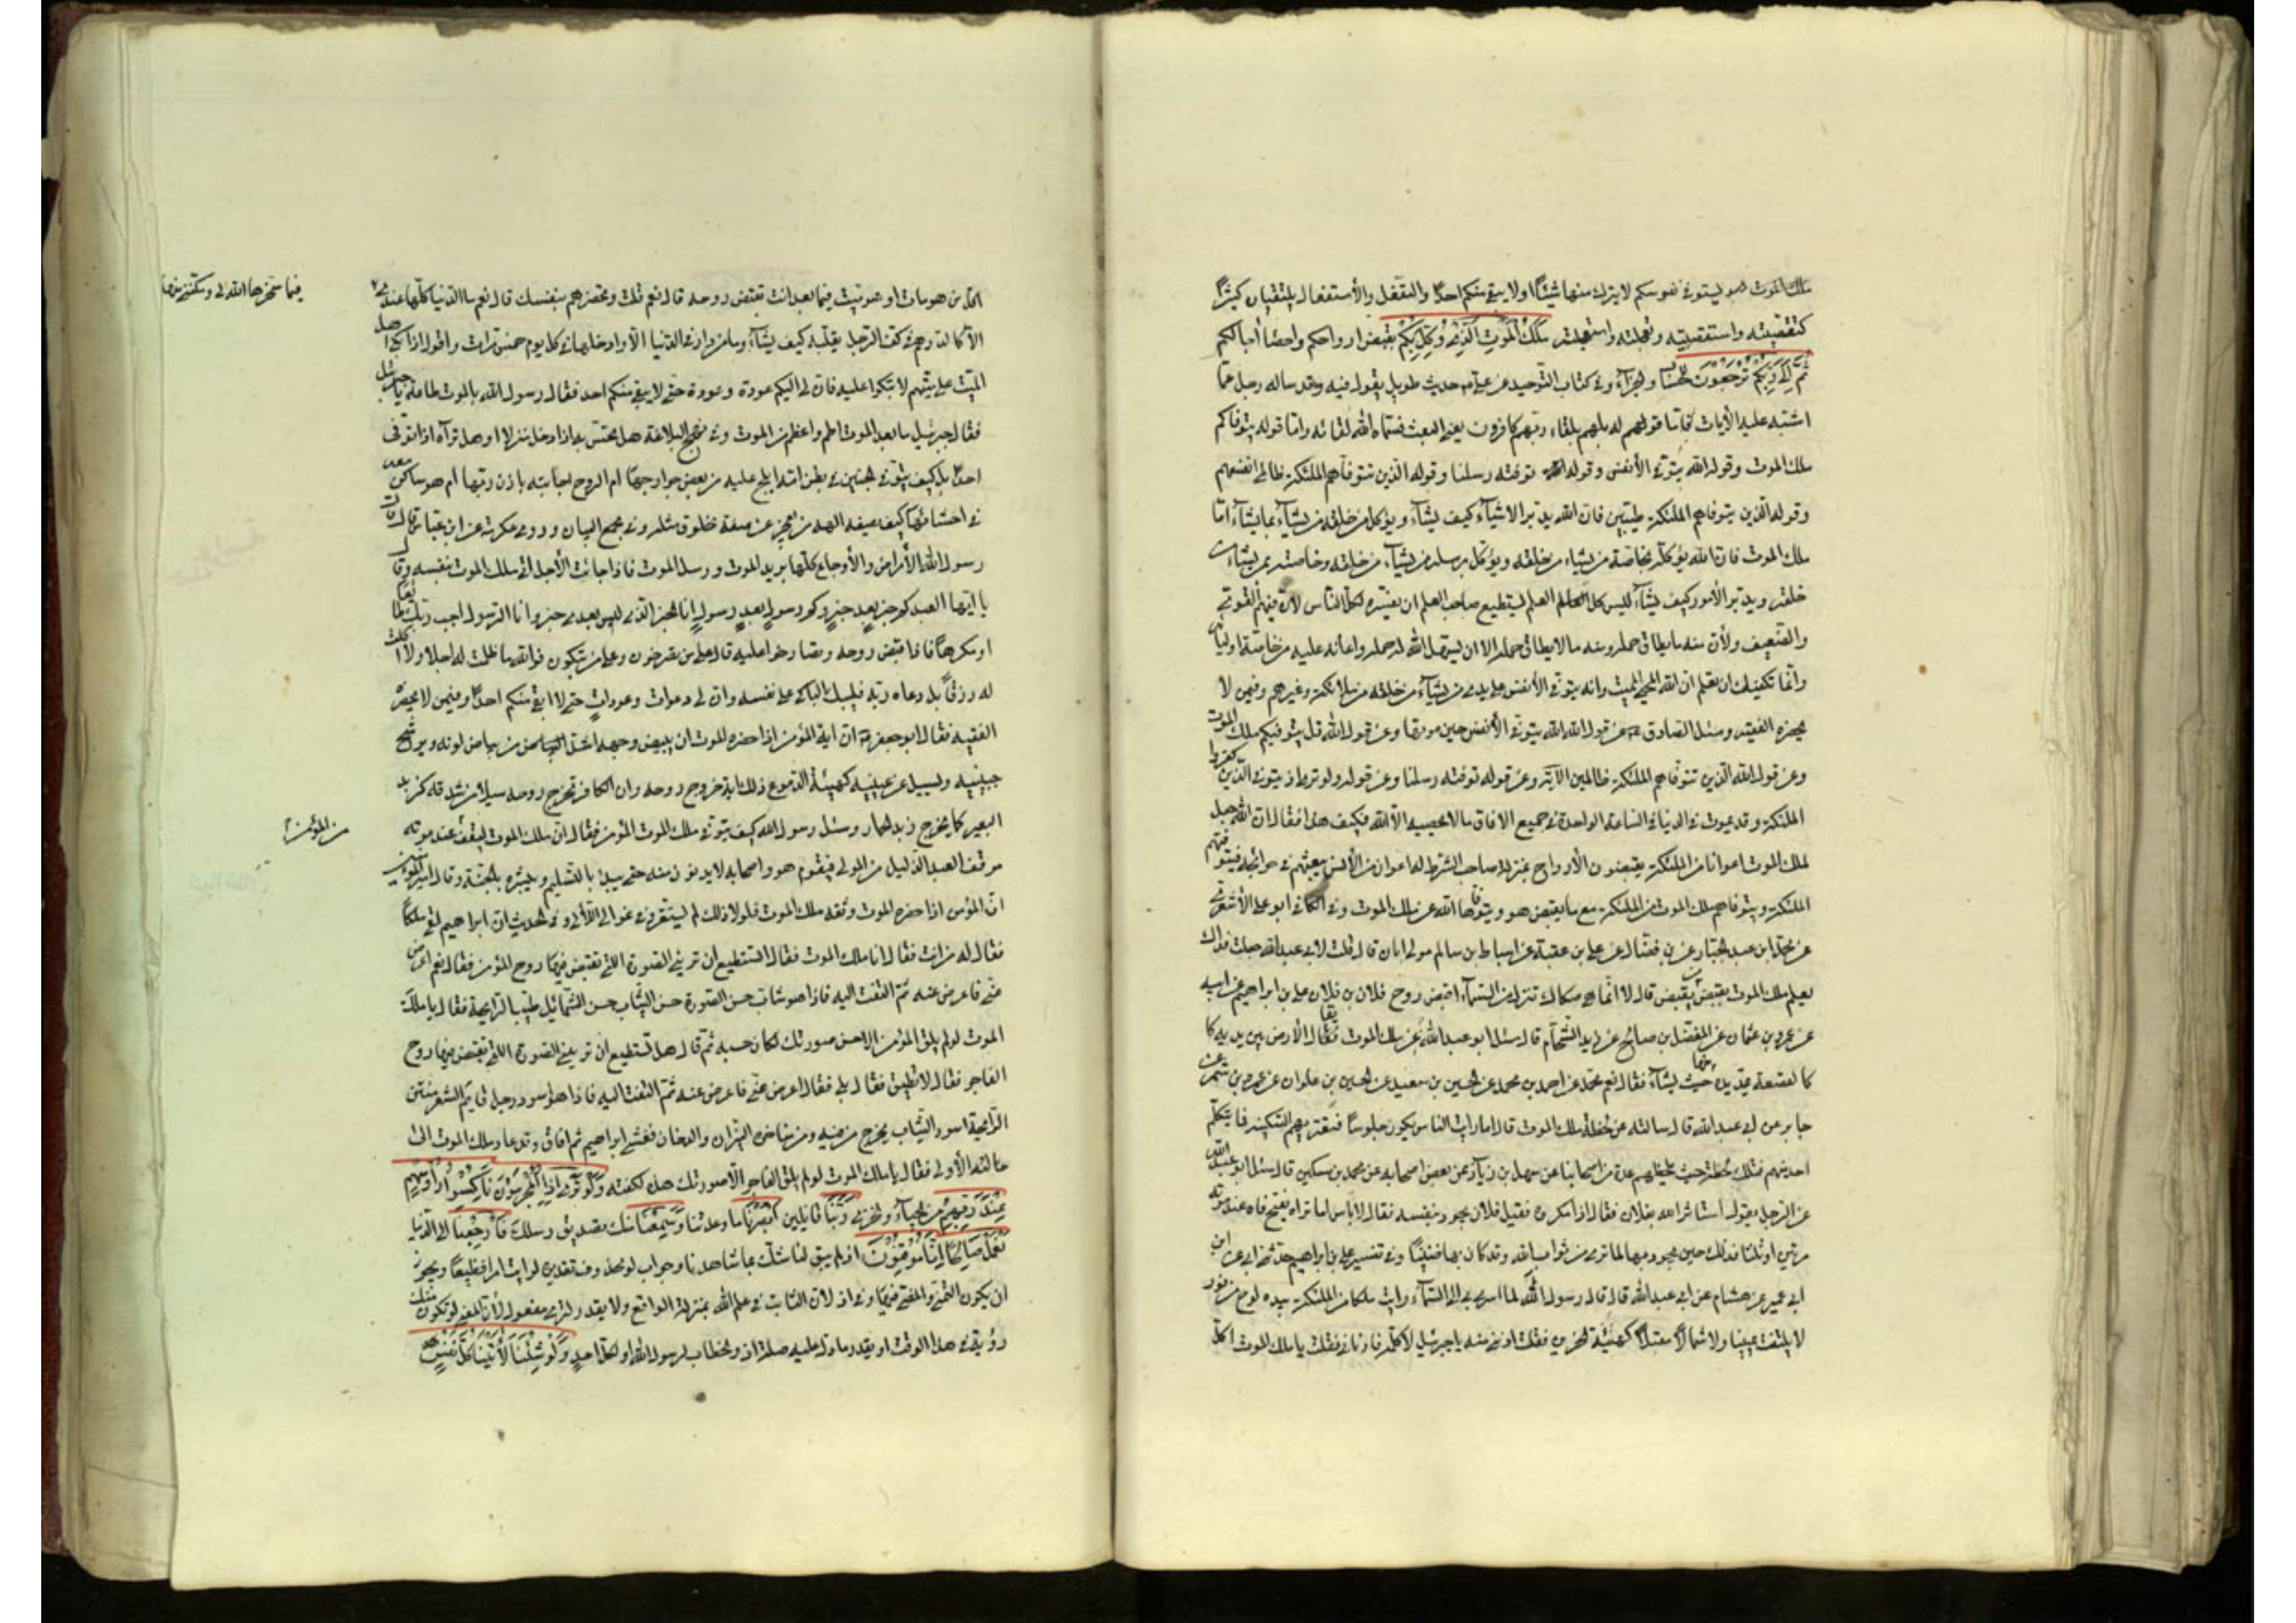 ملك الموت هو ليتوفى نفوسكم لا يترك منها شيئا اولا يبقى منكم احدا والتفعل والأستفعال يلتقيان كثيرا
كتقصيته واستقصيته وتعجلته واستعجلته ملك الموت الذي وكل بكم بقبض ارواحكم واحصاء آجالكم
ثم الى ربكم ترجعون للحساب والجزاء وفي كتاب التوحيد عن علي ع م حديث طويل يقول فيه وقد ساله رجل عما
اشتبه عليه الأيات فاما قوله بل هم بلقاء ربهم كافرون يعني البعث فسماه الله لقائه واما قوله يتوفاكم
ملك الموت وقوله الله يتوفى الأنفس وقوله توفته رسلنا وقوله الذين تتوفاهم الملئكة ظالمي انفسهم
وقوله الذين تتوفاهم الملئكة طيبين فان الله يدبر الاشياء كيف يشاء ويوكل من خلقه من يشاء بما يشاء اما
ملك الموت فان الله يوكله بخاصة من يشاء من خلقه ويوكل رسله من يشاء من خلقه وخاصته بمن يشاء من
خلقه ويدبر الأمور كيف يشاء ليس كل العلم العلم ليستطيع صاحب العلم ان يفسره لكل الناس لأن فيهم القوي
والضعيف ولأن منه ما يطاق حمله ومنه ما لا يطاق حمله الا ان يسهل الله له حمله واعانه عليه من خاصة اوليائه
وانما تكفيك ان تعلم ان الله المحيي المميت وانه يتوفى الأنفس على يدي من يشاء من خلقه من ملائكته وغيرهم وفيمن لا
يحضره الفقيه وسئل الصادق عن قول الله الله يتوفى الأنفس حين موتها وعن قول الله قل يتوفيكم ملك الموت
وعن قوله الله الذين تتوفاهم الملئكة ظالمين الآية وعن قوله توفته رسلنا وعن قوله ولو ترى اذ يتوفى الذين كفروا
الملئكة وقد يموت في الدنيا في الساعة الواحدة في جميع الافاق ما لا يحصيه الا الله فكيف هذا فقال ان الله جعل
لملك الموت اعوانا من الملئكة يقبضون الأرواح بمنزلة صاحب الشرطة له اعوان من الأنس يبعثهم في حوائجه فيتوفهم
الملئكة ويتوفاهم ملك الموت من الملئكة مع ما يقبض هو ويتوفاها الله عن ملك الموت وفي الكافي ابو علي الأشعري
عن محمد بن عبد الجبار عن بن فضال عن علي بن عقبة عن اسباط بن سالم مولى ابان قال قلت لأبي عبد الله جعلت فداك
يعلم ملك الموت بقبض من يقبض قال لا انما هي صكاك تنزل من السماء اقبض روح فلان بن فلان علي بن ابراهيم عن ابيه
عن عمرو بن عثمان عن المفضل بن صالح عن زيد الشحام قال سئل ابو عبد الله عن ملك الموت فقال الأرض بين يديه كا
كالقصعة يمد يده منها حيث يشاء فقال نعم محمد عن احمد بن محمد عن الحسين بن سعيد عن الحسين بن علوان عن عمرو بن شمر عن
جابر عن ابي عبد الله قال سالته عن لحظة ملك الموت قال اما رايت الناس يكون جلوسا فتعتريهم السكينة فما يتكلم
احد منهم فتلك لحظة حيث يلحظهم عدة من اصحابنا عن سهل بن زياد عن بعض اصحابه عن محمد بن سكين قال سئل ابو عبد الله
عن الرجل يقول استاثر الله بفلان فقال ذا مكروه فقيل فلان يجود بنفسه فقال لا باس اما تراه يفتح فاه عند موته
مرتين او ثلثا فذلك حين يجود بها لما ترى من ثواب الله وقد كان بها ضنينا وفي تفسير علي بن ابراهيم حدثني ابي عن ابن
ابي عمير عن هشام عن ابي عبد الله قال قال رسول الله لما اسري بي الى السماء رايت ملكا من الملئكة بيده لوح من نور
لا يلتفت يمينا ولا شمالا مقبلا كهيئة الحزين فقلت من هذا يا جبرئيل فقلت يا ملك الموت اكل
الكل من هو مات او هو ميت فيما بعد انت تقبض روحه قال نعم قلت وتحضرهم بنفسك قال نعم ما الدنيا كلها عندي
فيما سخرها الله لي ومكنني منها
الا كالدرهم في كف الرجل يقلبه كيف يشاء وما من دار في الدنيا الا وادخلها في كل يوم خمس مرات واقول اذا بكى اهل
الميت على ميتهم لا تبكوا عليه فان لي اليكم عودة وعودة حتى لا يبقى منكم احد فقال رسول الله بالموت طامة يا جبرئيل
فقال جبرئيل ما بعد الموت اطم واعظم من الموت وفي نهج البلاغة هل يحس به اذا دخل منزلا او هل تراه اذا توفى
احدا بل كيف يتوفى الجنين في بطن امه ايلج عليه من بعض جوارحها ام الروح اجابته باذن ربها ام هو ساكن معه
في احشائها كيف يصف الهه من يعجز عن صفة مخلوق مثله وفي مجمع البيان وروى عكرمة عن ابن عباس قال قال
رسول الله الأمراض والأوجاع كلها بريد الموت ورسل الموت فاذا جائت الأجل اتى ملك الموت بنفسه وقال
يا ايها العبد كم خبر بعد خبر وكم رسول بعد رسول انا الخبر الذي ليس بعدي خبر وانا الرسول اجب ربك طائعا
او مكرها فاذا قبض روحه وتصارخوا عليه قال على من تصرخون وعلى من تبكون فوالله ما ظلمت له اجلا ولا اكلت
له رزقا بل دعاه ربه فليبك الباكي على نفسه وان لي دعوات وعودات حتى لا ابقي منكم احدا وفيمن لا يحضره
الفقيه فقال ابو جعفر ان آية المؤمن اذا حضره الموت ان يبيض وجهه اشد البياض من بياض لونه ويرشح
جبينه ويسيل من عينيه كهيئة الدموع فذلك آية خروج روحه وان الكافر تخرج روحه سيلا من شدقه كزبد
البعير كما يخرج زبد الحمار وسئل رسول الله كيف يتوفى ملك الموت المؤمن فقال ان ملك الموت ليقف عند موته
من المؤمن
موقف العبد الذليل من المولى فيقوم هو واصحابه لا يدنون منه حتى يبدأ بالتسليم ويبشره بالجنة وقال امير المؤمنين
ان المؤمن اذا حضره الموت وثقه ملك الموت فلولا ذلك لم يستقر وفي غوالي اللآلي وفي الحديث ان ابراهيم لقي ملكا
فقال له من انت فقال انا ملك الموت فقال اتستطيع ان تريني الصورة التي تقبض فيها روح المؤمن فقال نعم اعرض
عني فاعرض عنه ثم التفت اليه فاذا هو شاب حسن الصورة حسن الثياب حسن الشمائل طيب الرايحة فقال يا ملك
الموت لو لم يلق المؤمن الا حسن صورتك لكان حسبه ثم قال هل تستطيع ان تريني الصورة التي تقبض فيها روح
الفاجر فقال لا تطيق فقال بلى فقال اعرض عني فاعرض عنه ثم التفت اليه فاذا هو اسود رجل قائم الشعر منتن
الرايحة اسود الثياب يخرج من فيه ومن مناخره النيران والدخان فغشي ابراهيم ثم افاق وقد عاد ملك الموت الى
حالته الأولى فقال يا ملك الموت لو لم يلق الفاجر الا صورتك هذه لكفته ولو ترى اذ المجرمون ناكسوا رؤسهم
عند ربهم من الحياء والخزي ربنا قائلين ابصرنا ما وعدتنا وسمعنا منك تصديق رسلك فارجعنا الى الدنيا
نعمل صالحا انا موقنون اذ لم يبق لنا شك بما شاهدنا وجواب لو محذوف تقديره لرايت امرا فظيعا ويجوز
ان يكون للتمني والمضي فيها وفي اذ لان الثابت في علم الله بمنزلة الواقع ولا يقدر لترى مفعول لأن المعنى لو تكون منك
رؤية في هذا الوقت او يقدر ما دل عليه صلة اذ والخطاب لرسول الله او لكل احد ولو شئنا لآتينا كل نفس